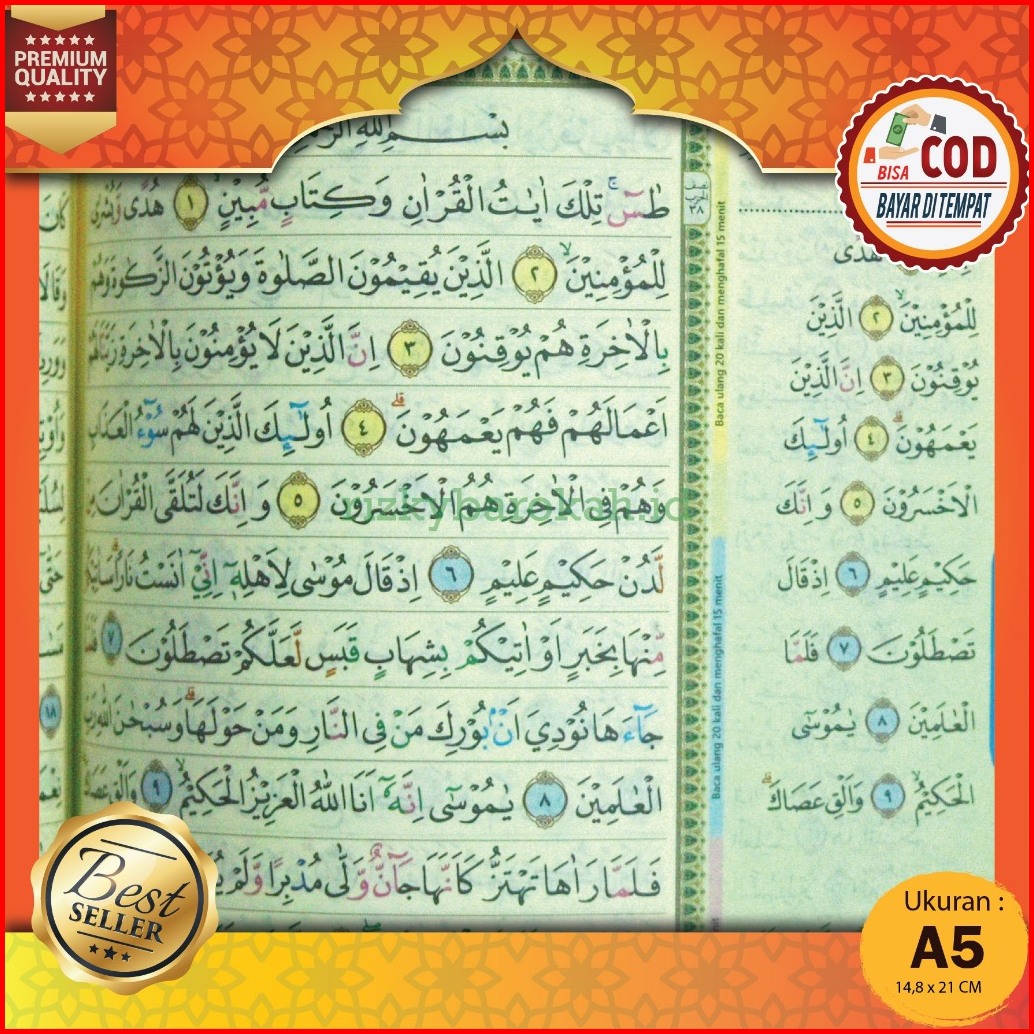 PREMIUM
QUALITY
BISA COD
BAYAR DI TEMPAT
بِسْمِ اللهِ
طٰسۤ ۚ تِلْكَ اٰيٰتُ الْقُرْاٰنِ وَكِتَابٍ مُّبِيْنٍ ۙ ١ هُدًى وَّبُشْرٰى
لِلْمُؤْمِنِيْنَ ۙ ٢ الَّذِيْنَ يُقِيْمُوْنَ الصَّلٰوةَ وَيُؤْتُوْنَ الزَّكٰوةَ وَهُمْ
بِالْاٰخِرَةِ هُمْ يُوْقِنُوْنَ ٣ اِنَّ الَّذِيْنَ لَا يُؤْمِنُوْنَ بِالْاٰخِرَةِ زَيَّنَّا لَهُمْ
اَعْمَالَهُمْ فَهُمْ يَعْمَهُوْنَ ۗ ٤ اُولٰۤىِٕكَ الَّذِيْنَ لَهُمْ سُوْۤءُ الْعَذَابِ
وَهُمْ فِى الْاٰخِرَةِ هُمُ الْاَخْسَرُوْنَ ٥ وَاِنَّكَ لَتُلَقَّى الْقُرْاٰنَ مِنْ
لَّدُنْ حَكِيْمٍ عَلِيْمٍ ٦ اِذْ قَالَ مُوْسٰى لِاَهْلِهٖٓ اِنِّيْٓ اٰنَسْتُ نَارًا ۗ
مِّنْهَا بِخَبَرٍ اَوْ اٰتِيْكُمْ بِشِهَابٍ قَبَسٍ لَّعَلَّكُمْ تَصْطَلُوْنَ ٧
جَاۤءَهَا نُوْدِيَ اَنْۢ بُوْرِكَ مَنْ فِى النَّارِ وَمَنْ حَوْلَهَا ۗ وَسُبْحٰنَ اللّٰهِ رَبِّ
الْعٰلَمِيْنَ ٨ يٰمُوْسٰٓى اِنَّهٗٓ اَنَا اللّٰهُ الْعَزِيْزُ الْحَكِيْمُ ۙ ٩ وَاَلْقِ عَصَاكَ
فَلَمَّا رَاٰهَا تَهْتَزُّ كَاَنَّهَا جَاۤنٌّ وَّلّٰى مُدْبِرًا وَّلَمْ
نصف
الحزب
٣٨
Baca ulang 20 kali dan menghafal 15 menit
Baca ulang 20 kali dan menghafal 15 menit
هُدًى
لِلْمُؤْمِنِيْنَ ۙ ٢ الَّذِيْنَ
يُوْقِنُوْنَ ٣ اِنَّ الَّذِيْنَ
يَعْمَهُوْنَ ۗ ٤ اُولٰۤىِٕكَ
الْاَخْسَرُوْنَ ٥ وَاِنَّكَ
حَكِيْمٍ عَلِيْمٍ ٦ اِذْ قَالَ
تَصْطَلُوْنَ ٧ فَلَمَّا
الْعٰلَمِيْنَ ٨ يٰمُوْسٰٓى
الْحَكِيْمُ ۙ ٩ وَاَلْقِ عَصَاكَ ۗ
١٨
rizkybarokah.id
Best
SELLER
Ukuran :
A5
14,8 x 21 CM